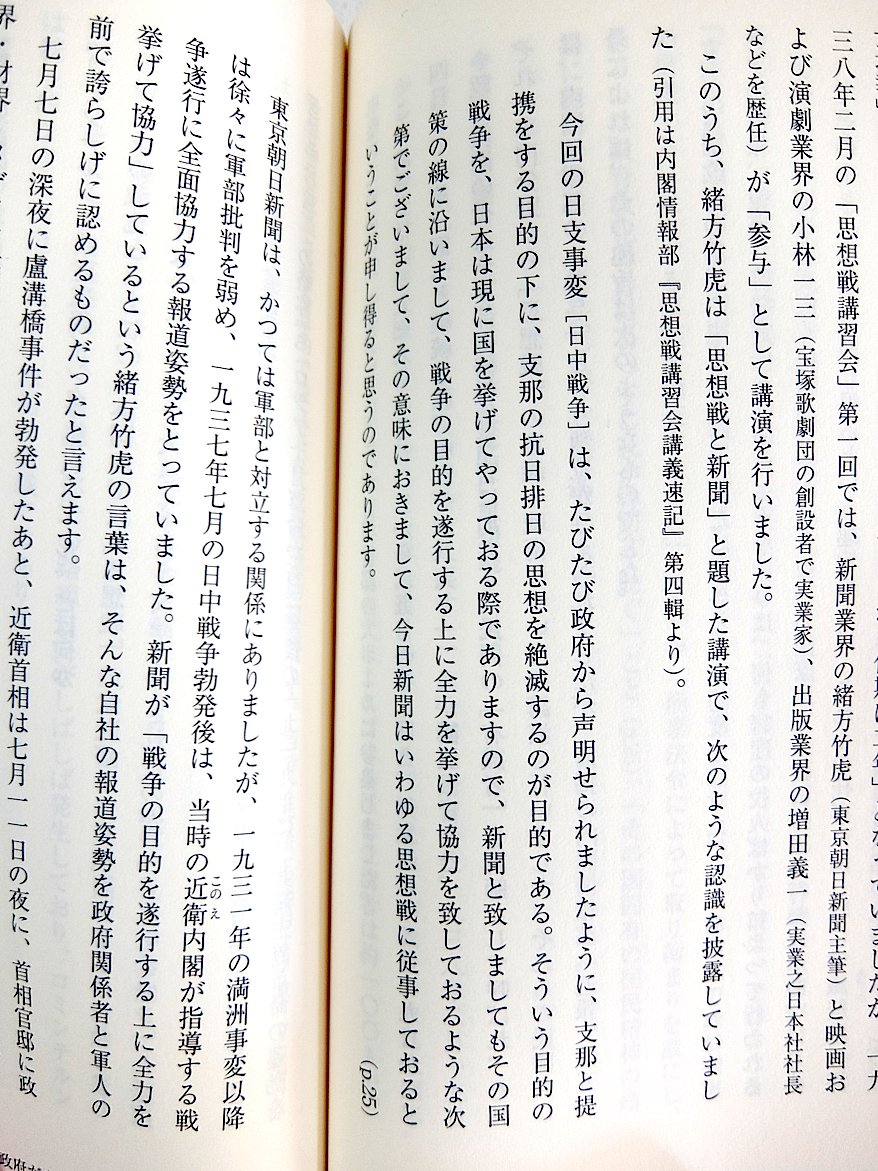 三八年二月の「思想戦講習会」第一回では、新聞業界の緒方竹虎（東京朝日新聞主筆）と映画お
よび演劇業界の小林一三（宝塚歌劇団の創設者で実業家）、出版業界の増田義一（実業之日本社社長
などを歴任）が「参与」として講演を行いました。
このうち、緒方竹虎は「思想戦と新聞」と題した講演で、次のような認識を披露していまし
た（引用は内閣情報部『思想戦講習会講義速記』第四輯より）。
今回の日支事変［日中戦争］は、たびたび政府から声明せられましたように、支那と提
携をする目的の下に、支那の抗日排日の思想を絶滅するのが目的である。そういう目的の
戦争を、日本は現に国を挙げてやっておる際でありますので、新聞と致しましてもその国
策の線に沿いまして、戦争の目的を遂行する上に全力を挙げて協力を致しておるような次
第でございまして、その意味におきまして、今日新聞はいわゆる思想戦に従事しておると
いうことが申し得ると思うのであります。
(p.25)
東京朝日新聞は、かつては軍部と対立する関係にありましたが、一九三一年の満洲事変以降
は徐々に軍部批判を弱め、一九三七年七月の日中戦争勃発後は、当時の近衛内閣が指導する戦
このえ
争遂行に全面協力する報道姿勢をとっていました。新聞が「戦争の目的を遂行する上に全力を
挙げて協力」しているという緒方竹虎の言葉は、そんな自社の報道姿勢を政府関係者と軍人の
前で誇らしげに認めるものだったと言えます。
七月七日の深夜に盧溝橋事件が勃発したあと、近衛首相は七月一一日の夜に、首相官邸に政
界・財界